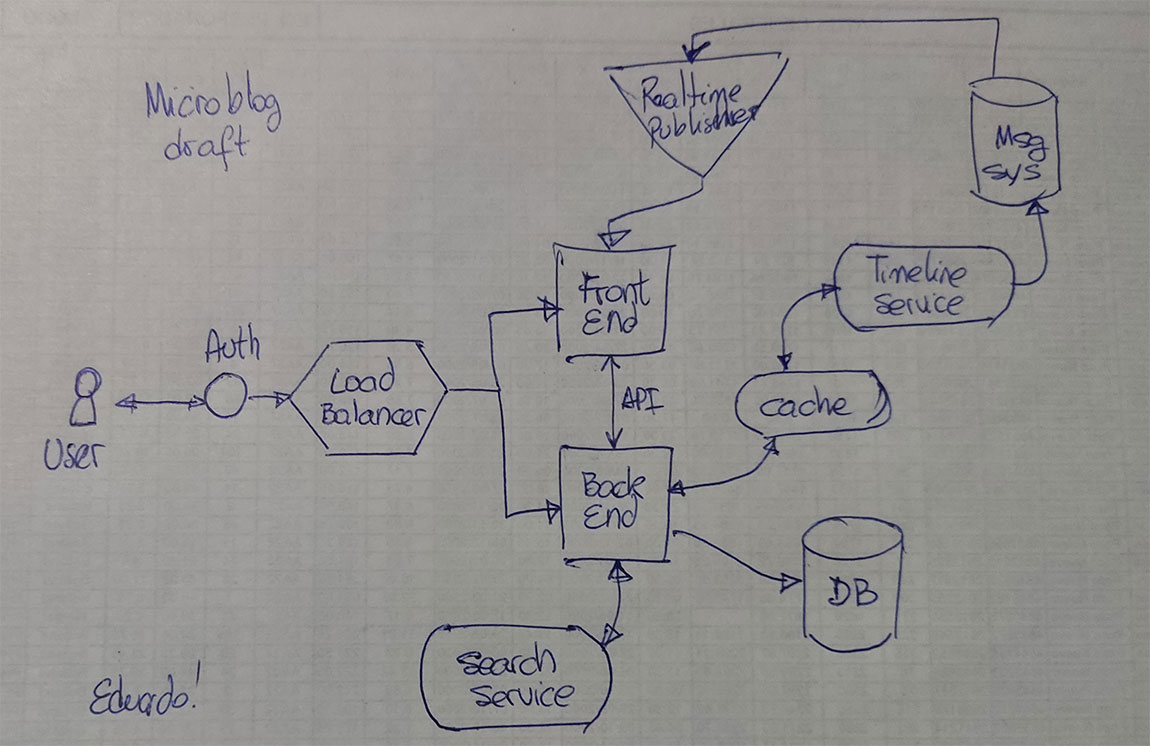 Microblog
draft
Realtime
Publisher
Msg
Sys
Front
End
Timeline
Service
Auth
Load
Balancer
User
API
cache
Back
End
DB
Search
Service
Eduardo!